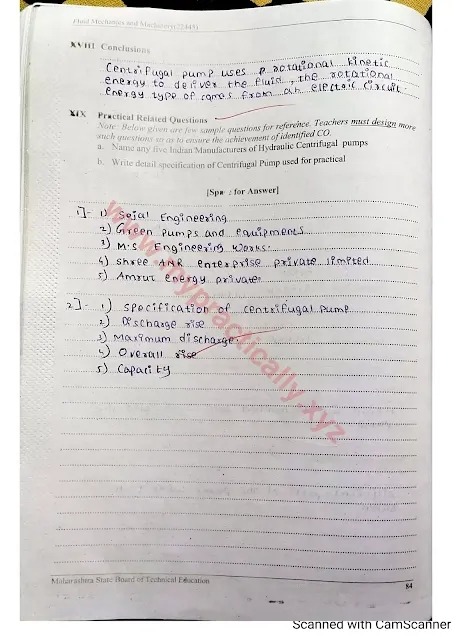 Fluid Mechanics and Machinery (22445)
XVIII Conclusions
Centrifugal pump uses rotational kinetic
energy to deliver the fluid, the rotational
energy type of comes from an electric circuit.
XIX Practical Related Questions
Note: Below given are few sample questions for reference. Teachers must design more
such questions so as to ensure the achievement of identified CO.
a. Name any five Indian Manufacturers of Hydraulic Centrifugal pumps
b. Write detail specification of Centrifugal Pump used for practical
[Spa e for Answer]
1]- 1) Sejal Engineering
2) Green pumps and equipments
3) M.S Engineering Works.
4) Shree ANR enterprise private limited
5) Amrut energy private.
2]- 1) Specification of centrifugal pump
2) Discharge rise
3) Maximum discharge
4) Overall rise
5) Capacity
www.mypractically.xyz
Maharashtra State Board of Technical Education
84
Scanned with CamScanner